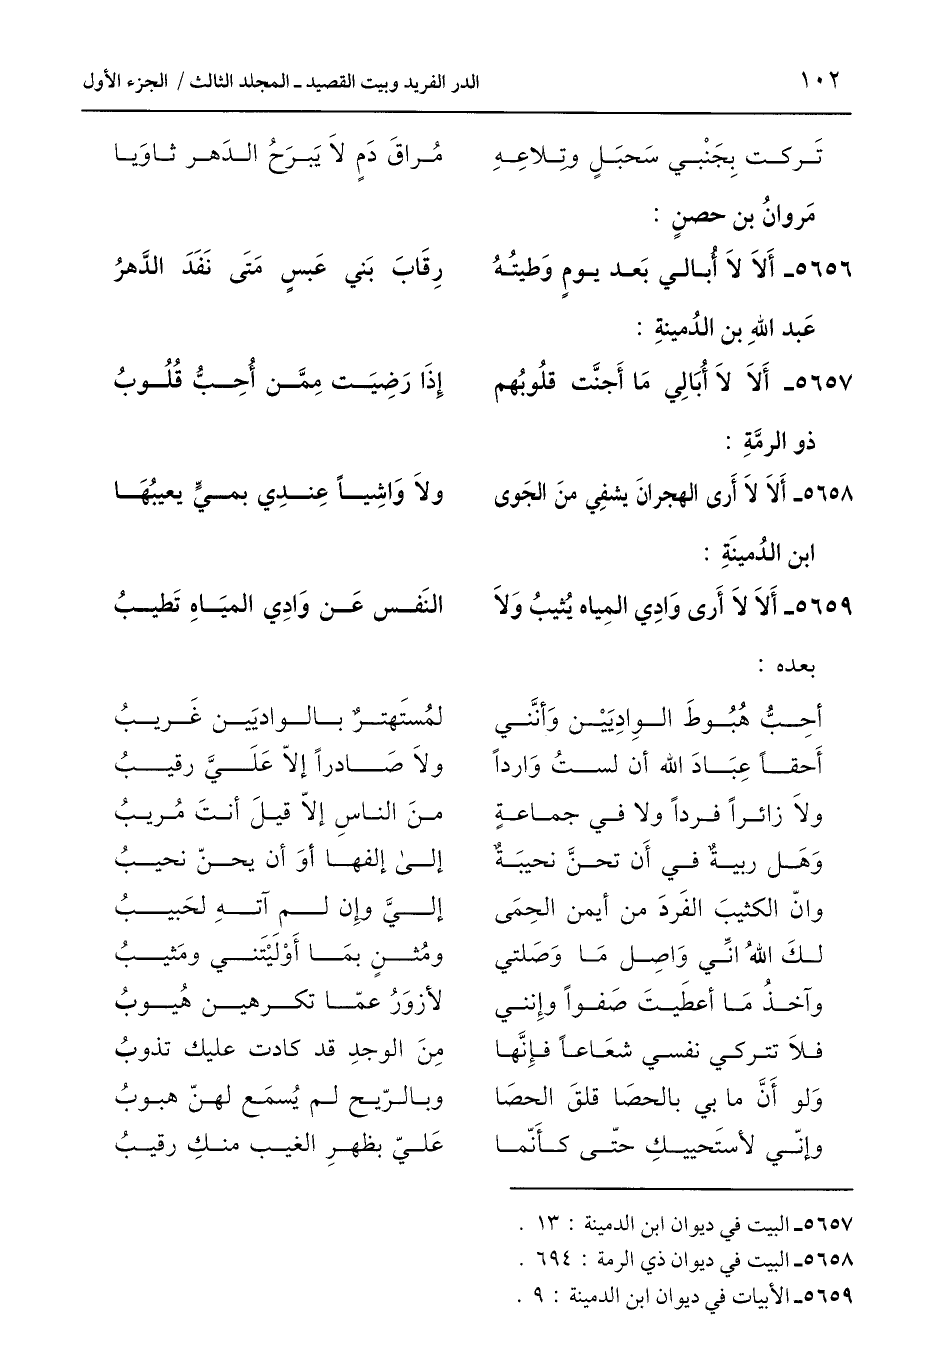 ١٠٢ الدر الفريد وبيت القصيد ـ المجلد الثالث / الجزء الأول
تَركت بِجَنْبي سَحبَلٍ وتِلاعِهِ مُراقَ دَمٍ لاَ يَبرَحُ الدَهر ثاوَيا
مَروانُ بن حصنٍ :
٥٦٥٦ـ أَلاَ لاَ أُبالي بَعد يومٍ وَطِيتُهُ رِقَابَ بَني عَبسٍ مَتَى نَفَدَ الدَّهرُ
عَبد اللهِ بن الدُمينةِ :
٥٦٥٧ـ أَلاَ لاَ أُبَالِي مَا أَجنَّت قلُوبُهم إِذَا رَضِيَت مِمَّن أُحِبُّ قُلُوبُ
ذو الرمَّةِ :
٥٦٥٨ـ أَلاَ لاَ أَرى الهجرانَ يشفِي منَ الجَوى ولاَ وَاشِياً عِندِي بمَيٍّ يعيبُهَا
ابن الدُمينَةِ :
٥٦٥٩ـ أَلاَ لاَ أَرى وَادِي المياه يُثيبُ وَلاَ النَفس عَن وَادِي الميَاهِ تَطيبُ
بعده :
أحبُّ هُبُوطَ الوادِيَيْن وَأنَّني لمُستَهترٌ بالواديَين غَريبُ
أَحقاً عبَادَ الله أن لستُ وَارداً ولاَ صَادراً إلاّ عَلَيَّ رقيبُ
ولاَ زائراً فرداً ولا في جماعةٍ منَ الناسِ إلاّ قيلَ أنتَ مُريبُ
وَهَل ريبةٌ في أن تحنَّ نَجيبَةٌ إلىٰ إلفها أوَ أن يحنّ نجيبُ
وانّ الكثيبَ الفَردَ من أيمن الحِمَى إليَّ وإن لم آته لحَبيبُ
لكَ اللهُ انّي وَاصِل مَا وَصَلتي ومُثنٍ بمَا أَوْلَيْتَني ومَثيبُ
وآخذُ مَا أعطَيتَ صَفواً وإنني لأزوَرُ عمّا تكرهين هُيوبُ
فلاَ تتركي نفسي شعَاعاً فإنَّها منَ الوجدِ قد كادت عليك تذوبُ
وَلو أنَّ ما بي بالحصَا قلقَ الحصَا وبالرّيح لم يُسمَع لهنّ هبوبُ
وإنّي لأستَحييك حتّى كأنّما عَليّ بظهرِ الغيب منك رقيبُ
٥٦٥٧ـ البيت في ديوان ابن الدمينة : ١٣ .
٥٦٥٨ـ البيت في ديوان ذي الرمة : ٦٩٤ .
٥٦٥٩ـ الأبيات في ديوان ابن الدمينة : ٩ .